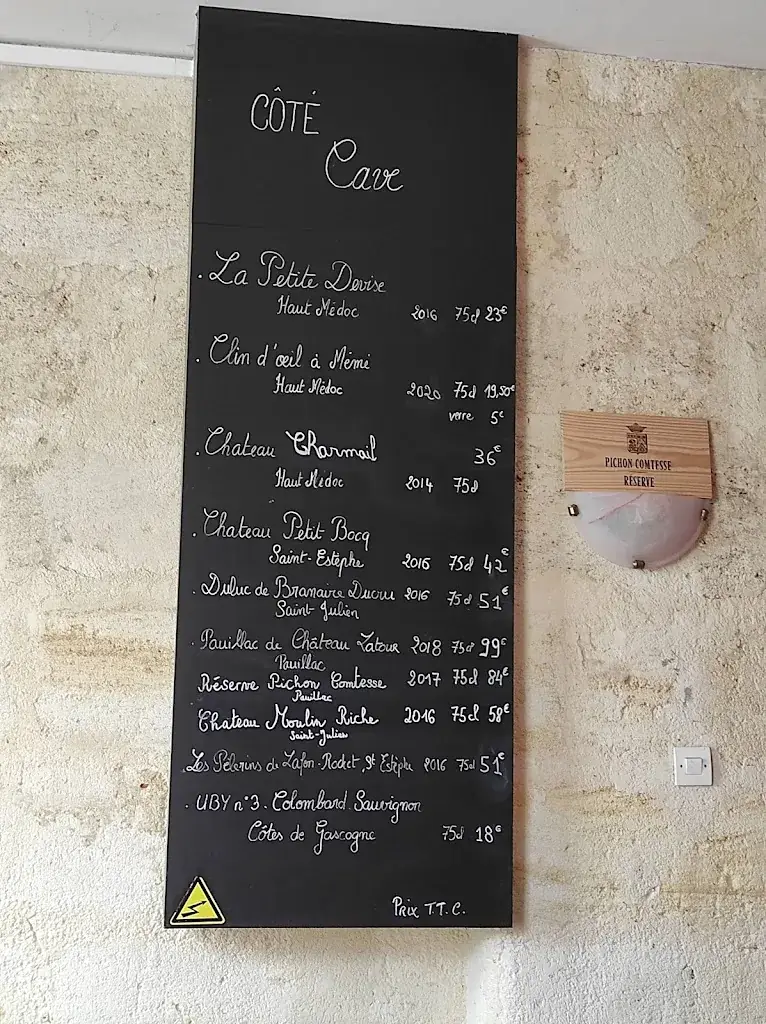 CÔTÉ
Cave
. La Petite Devise
Haut Médoc 2016 75cl 23€
. Clin d'œil à Mémé
Haut Médoc 2020 75cl 19,50€
verre 5€
. Chateau Charmail 36€
Haut Médoc 2014 75cl
. Chateau Petit Bocq
Saint-Estèphe 2016 75cl 42€
. Duluc de Branaire Ducru 2016 75cl 51€
Saint-Julien
. Pauillac de Château Latour 2018 75cl 99€
Pauillac
Réserve Pichon Comtesse 2017 75cl 84€
Pauillac
Chateau Moulin Riche 2016 75cl 58€
Saint-Julien
. Les Pèlerins de Lafon-Rochet, St Estèphe 2016 75cl 51€
. UBY n°3. Colombard. Sauvignon
Côtes de Gascogne 75cl 18€
Prix T.T.C.
PICHON COMTESSE
RÉSERVE